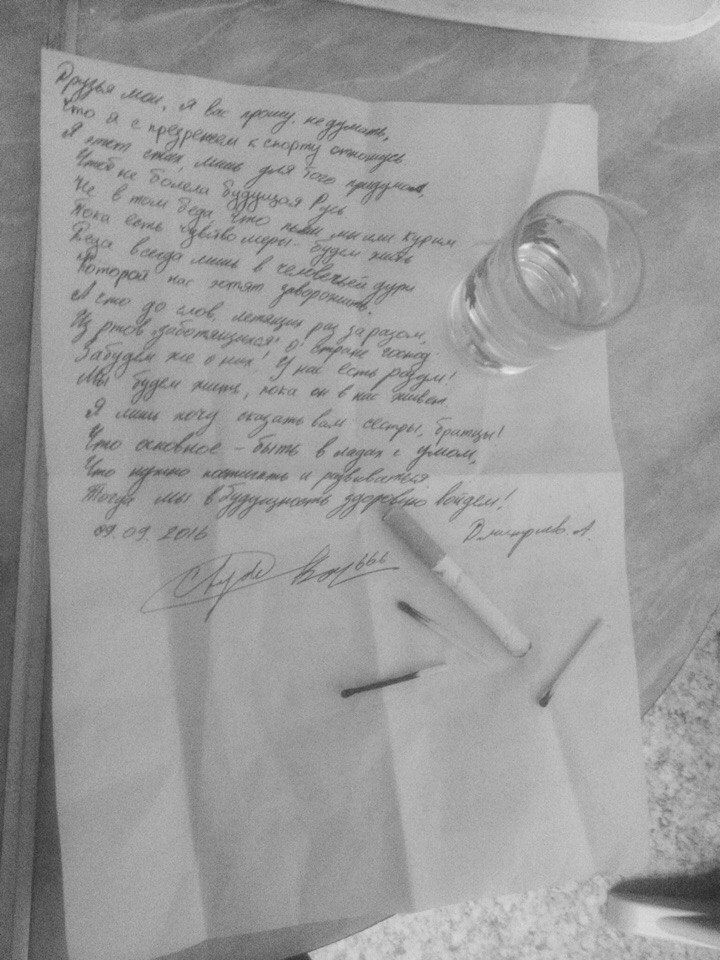 Друзья мои, я вас прошу не думать,
Что я с презреньем к спорту отношусь
Я этот стих лишь для того придумал,
Чтоб не болела будущая Русь
Не в том беда, что пьём мы или курим
Пока есть чувство меры - будем жить
Беда всегда лишь в человечьей дури
Которой нас хотят заворожить.
А что до слов, летящих раз за разом,
Из ртов "заботящихся" о стране господ
Забудем же о них! У нас есть разум!
Мы будем жить, пока он в нас живёт
Я лишь хочу сказать вам сестры, братцы!
Что основное - быть в ладах с умом,
Что нужно постигать и развиваться
Тогда мы в будущность здорово войдем!
09.09.2016
Дмитриев А.